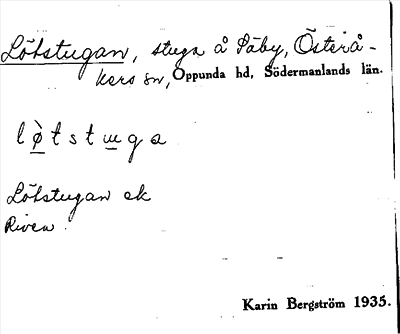 Lötstugan, stuga å Säby, Österå-
kers sn, Oppunda hd, Södermanlands län.
lø̀tstɯga
Lötstugan ek
Riven.
Karin Bergström 1935.